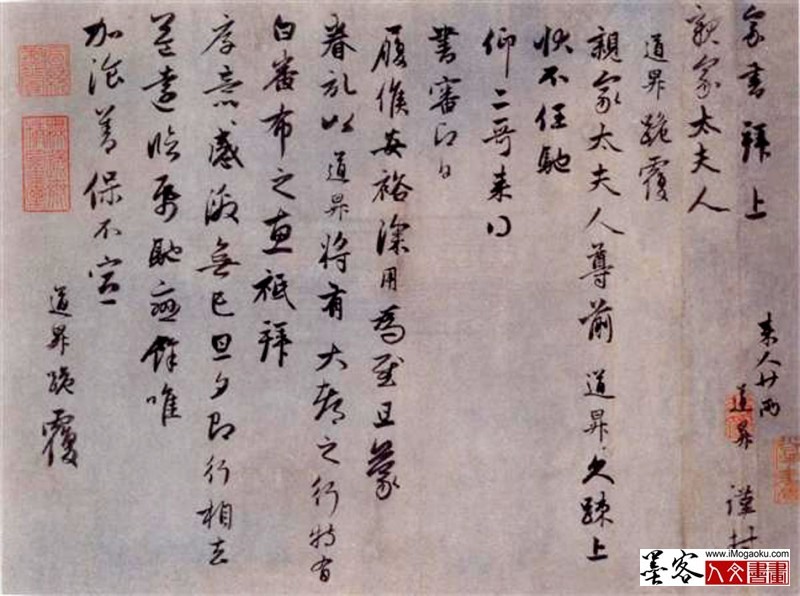 家書拜上
親家太夫人
道昇 謹封
道昇跪覆
親家太夫人尊前 道昇久疎上
狀不任馳
仰二哥来得
書審即日
履候安裕深用為慰且蒙
眷記以道昇將有大都之行特有
白番布之惠祗拜
厚意感激無已旦夕即行相去
益遠臨紙馳戀餘唯
加飡善保不宣
道昇跪覆
墨客
www.iMogaoku.com
人文書畫